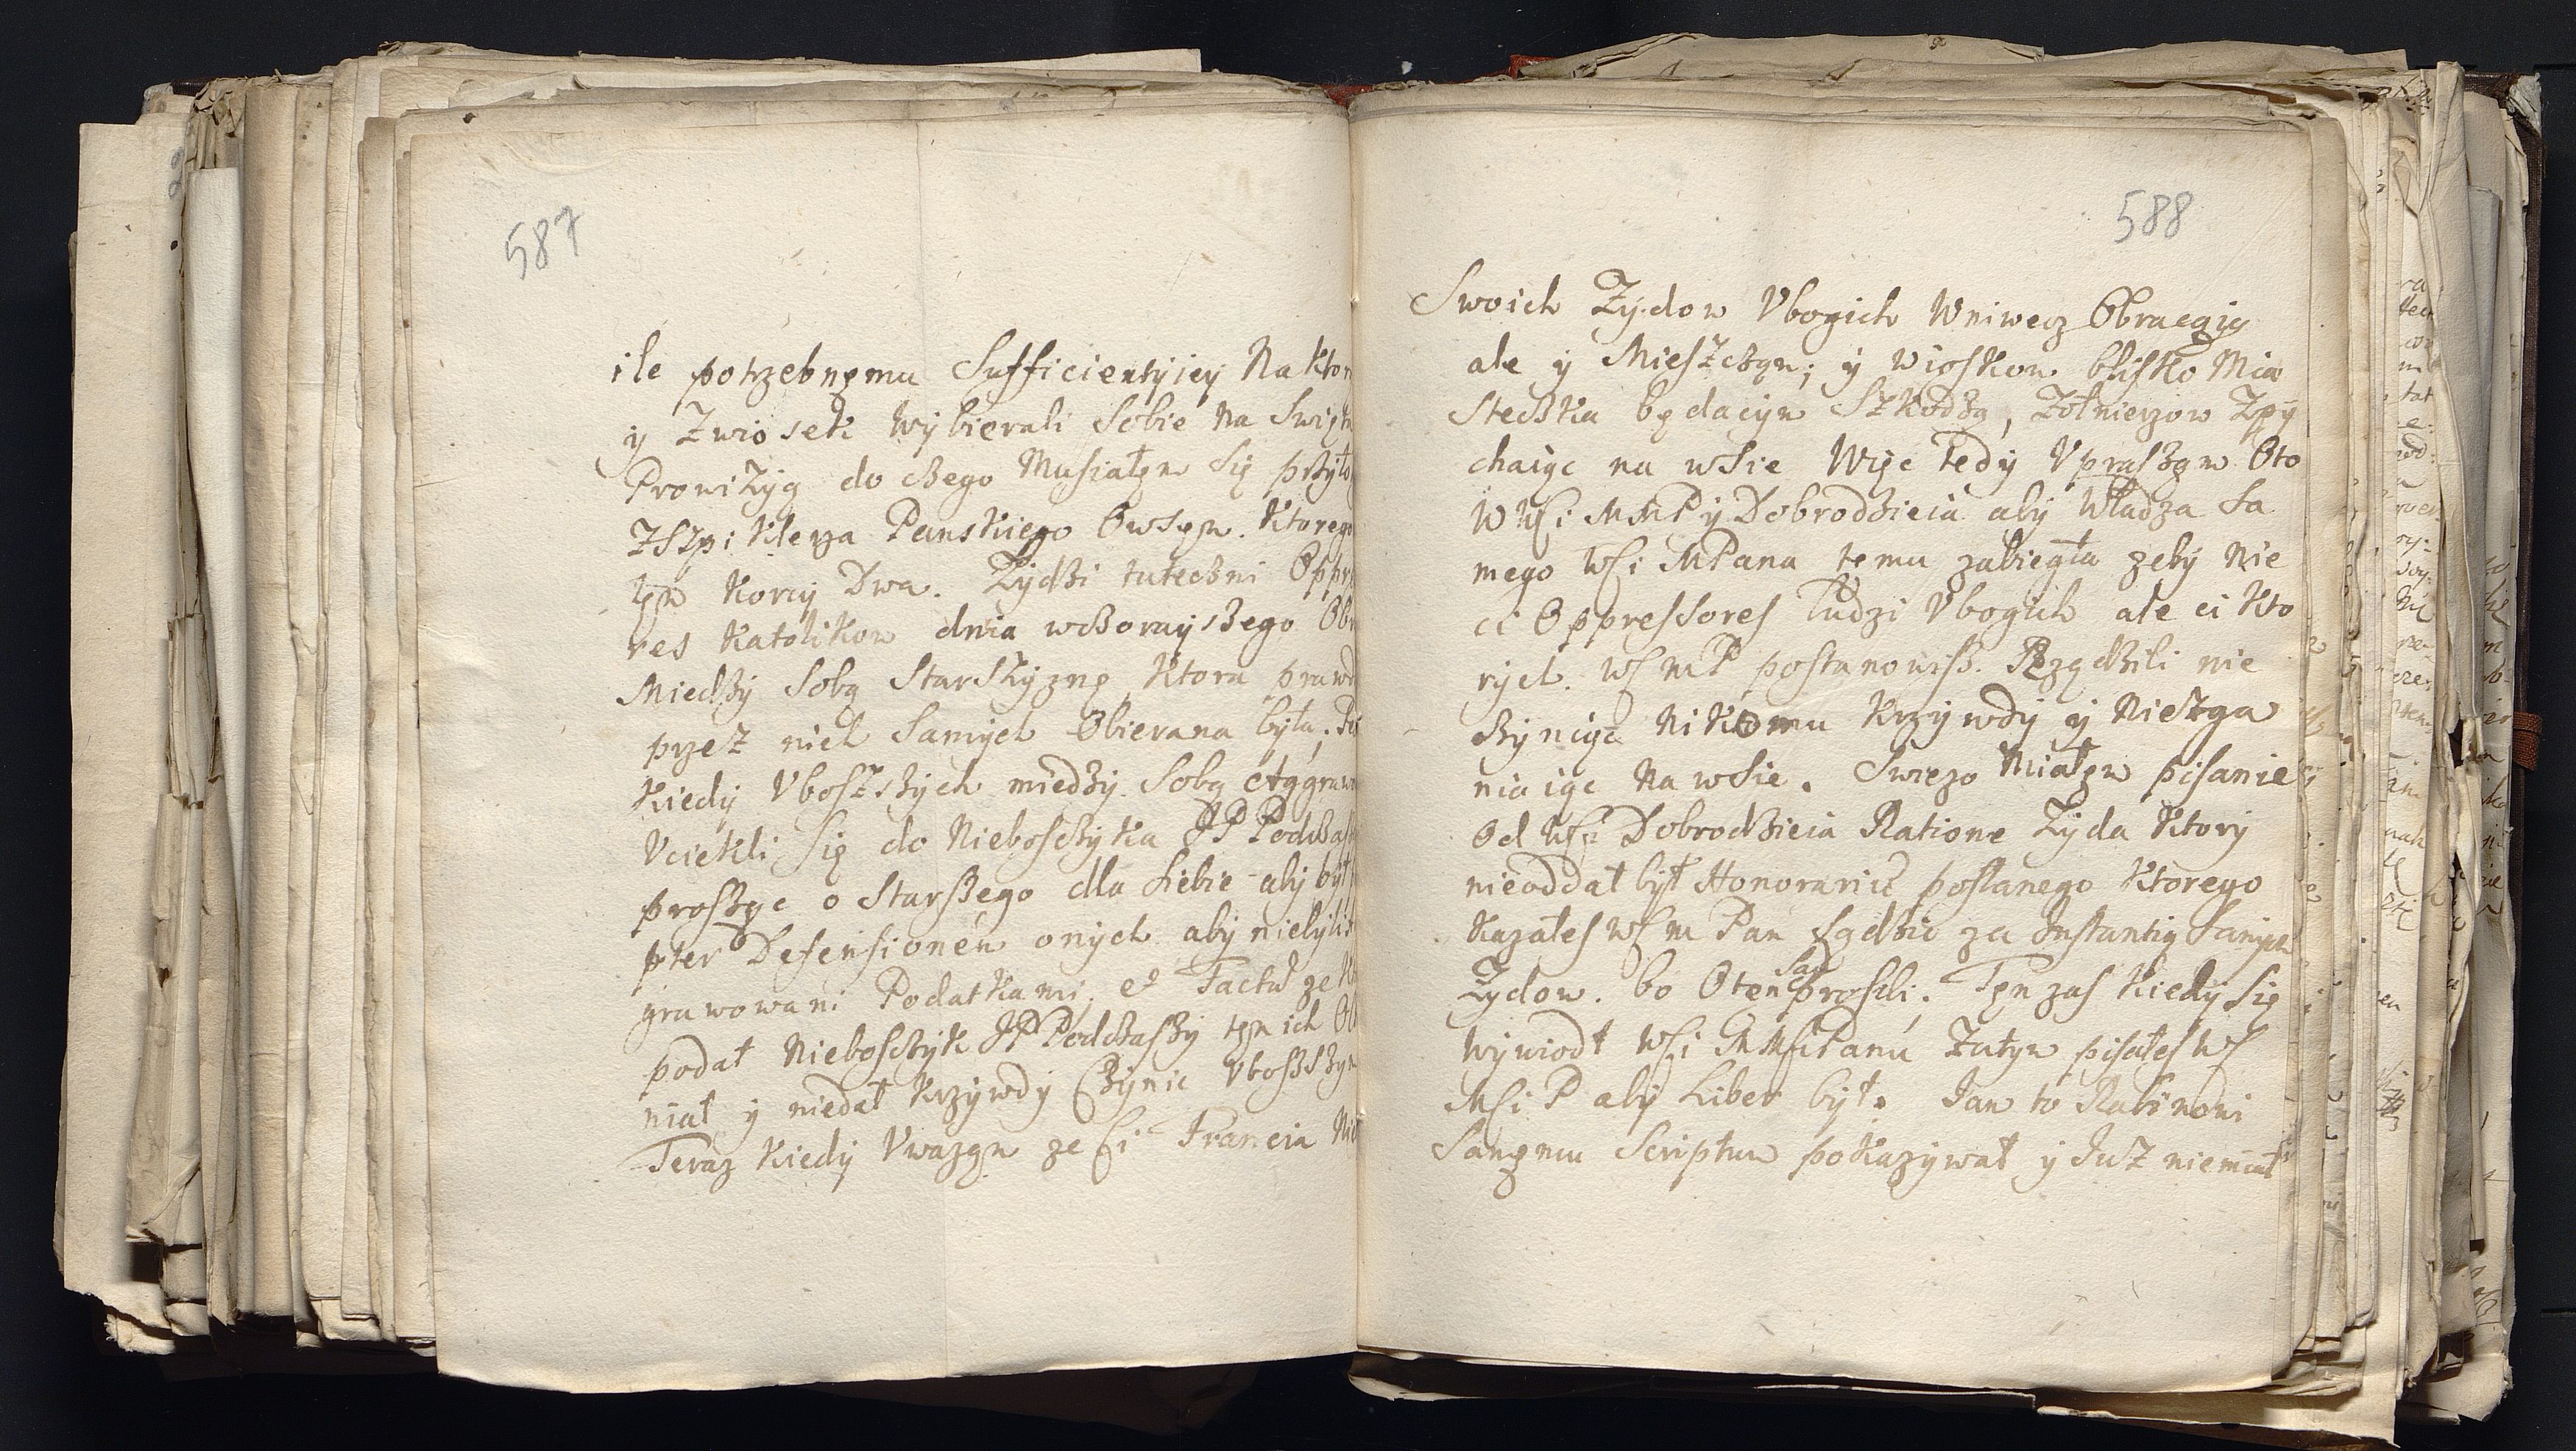 587
ile potrzebnęmu Sufficientyiey Na Ktor
y Zwiosek Wybierali Sobie Na Swięt
Prowizyą do czego Musiałęm Się przyło
Z Szpiklerza Panskiego Owsęm. Ktorego
tęn Korcy Dwa. Zydzi tuteczni Oppr
res Katolikow dnia wczorayszego Ob
Miedzy Sobą Starszyznę Ktora praw
przez nich Samych Obierana była;
Kiedy Vboszszych miedzy Sobą Aggraw
Vciekli Się do Nieboszczyka JP Podczas
prosząc o Starszego dla Siebie aby był
pter Defensionem onych aby niebyli
grawowani Podatkami, et Factu ze
podał Nieboszczyk JP Podczaszy tęn ich Ob
niał y niedał Krzywdy Czynic Vboszszym
Teraz Kiedy Vwazęm ze Ci Francia
588
Swoich Zydow Vbogich Wniwecz Obracaią
ale y Mieszczęm; y wioskom blisko Mia
steczka będacym Szkodzą, Zołnierzow Zpy
chaiąc na wsie Więc tedy Vpraszam Oto
W WSi MMP y Dobrodzieia aby Władza Sa
mego WSi MPana temu zabiegła zeby Nie
ci Oppressores ludzi Vbogich ale ci Kto
rych WSMP postanowisz. Rządzili nie
Czyniąc Nikomu Krzywdy y Niezga
niaiąc Na wsie. Swiezo Miałęm pisanie
Od WSi Dobrodzieia Ratione Zyda Ktory
nieoddał był Honorariu posłanego Ktorego
Kazałes WSM Pan Sądzic za Instantią Samych
Zydow. bo Oten Sąd prosili; Tęn zas Kiedy Się
Wywiodł WSi MMSci Panu Zatym pisałes WS
MSi P aby Liber był. Jam to Rabinowi
Samęmu Scriptum pokazywał y Iusz niemiał